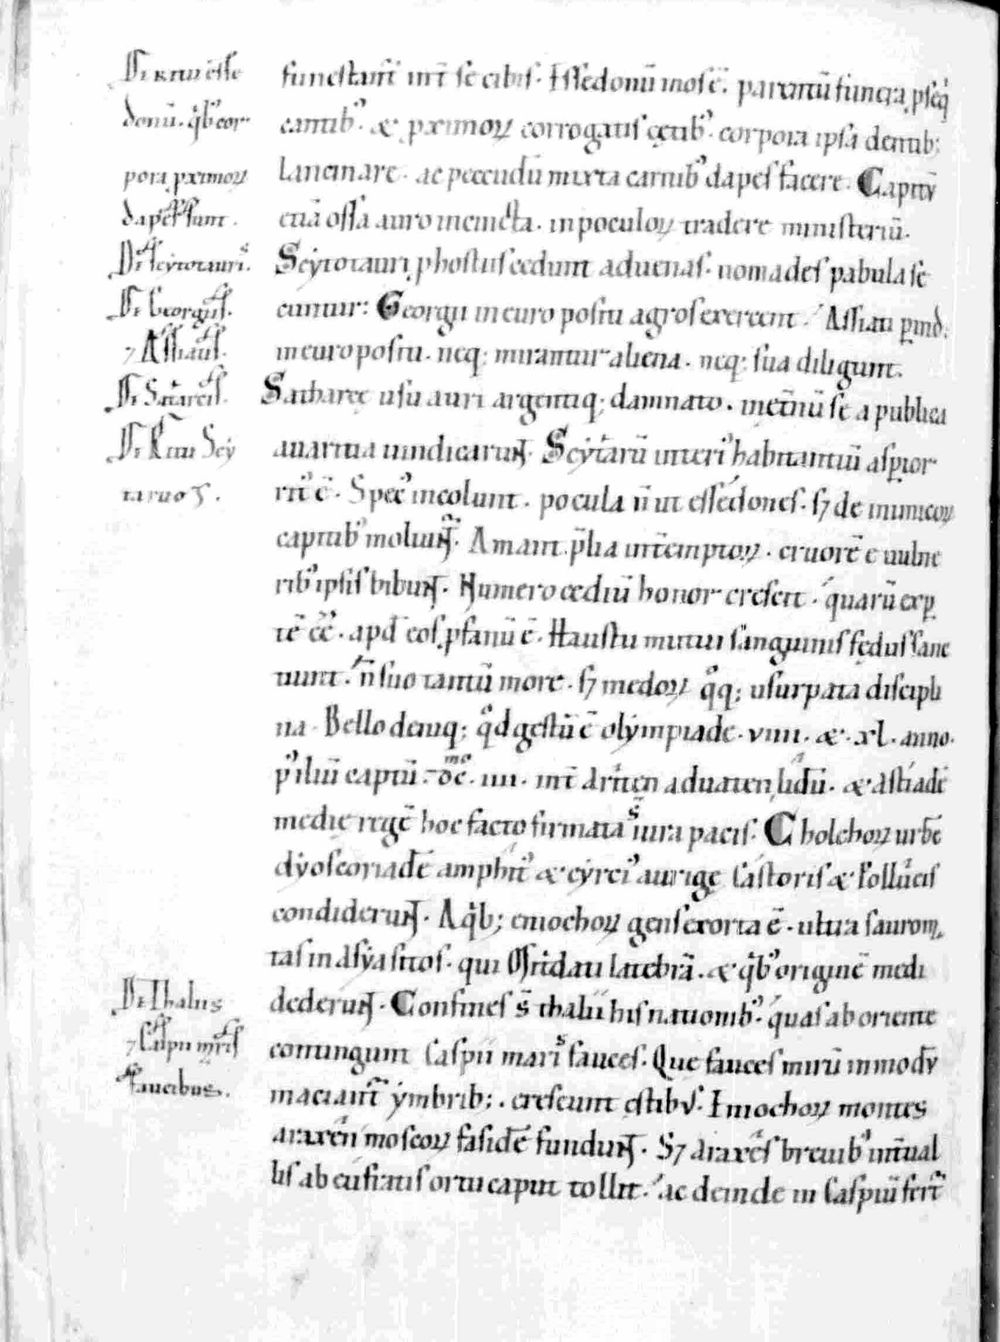 De ritu esse
donū. qͥbꝰ cor
pora ꝓximoꝝ
dapes sunt.
De scytotauris.
De Georgiis.
⁊ Assiatis.
De Satarcis.
De Ritu Scy
tarum.
De Thaliis
⁊ Caspii maris
faucibus.
funestant̄ int̄ se cibis. Issedonū mos ē. parentū funera ꝓseqͥ
cantibꝰ. & ꝓximoꝝ corrogatis cętibꝰ. corpora ipsa dentib;
lancinare. ac pecudū mixta carnibꝰ dapes facere. Capitū
etiā ossa auro incincta. in poculoꝝ tradere ministeriū.
Scytotauri ꝓ hostiis cedunt aduenas. nomades pabula se
cuntur: Georgii in euro positi agros exercent. Assiati ꝑind.
in euro positi. neq; mirantur aliena. neq; sua diligunt.
Satharcę usu auri argentiq; damnato. inet̄nū se a publica
auaritia uindicarunt. Scytarū interiꝰ habitantiū asꝑior
ritꝰ ē. Specꝰ incolunt. pocula n̄ ut essedones. s; de inimicoꝝ
captibꝰ moliunt̄. Amant p̄lia int̄emptoꝝ. cruorē e uulne
ribꝰ ipsis bibunt. Numero cediū honor crescit. quarū exꝑ
tē eē. apd̄ eos ꝓfanū ē. Haustu mutui sanguinis fędus sanc
iunt. n̄ suo tantū more. s; medoꝝ qͦq; usurpata discipli
na. Bello deniq; qͦd gestū ē olympiade. viiii. & xl. anno.
pꝰ iliū captū. dc̄. iiii. int̄ aliaten aduaten lidū. & astiadē
medię regē hoc facto firmata s̄ iura pacis. Cholchoꝝ urbē
dyoscoriadē amphitꝰ & cyrciꝰ aurigę Castoris & Pollucis
condiderunt. A qͥb; eniochoꝝ gens exorta ē. ultra saurom
tas in asya sitos. qui Mitridati latebrā. & qͥbꝰ originē medi
dederunt. Confines s̄ thalii his nationibꝰ. quas ab oriente
contingunt Caspii maris fauces. Que fauces mirū in modū
maciant̄ ymbrib;. crescunt estibꝰ. Eniochoꝝ montes
araxen moscoꝝ fasidē fundunt. S; araxes breuibꝰ int̄ual
lis ab eufratis ortu caput tollit. ac deinde in Caspiū fert̄